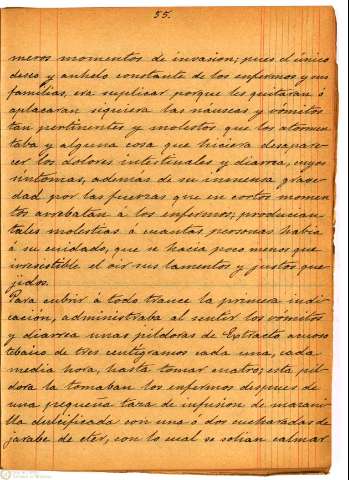 55.
meros momentos de invasion; pues el único
deseo y anhelo constante de los enfermos y sus
familias, era suplicar porque les quitaran ó
aplacaran siquiera las náuseas y vómitos
tan pertinentes y molestos que los atormen
taba y alguna cosa que hiciera desapare-
cer los dolores intestinales y diarrea, cuyos
síntomas, además de su inmensa grave-
dad por las fuerzas que en cortos momen
tos arrebatan á los enfermos; producian
tales molestias á cuantas personas habia
á su cuidado, que se hacia poco menos que
irresistible el oir sus lamentos y justos que
jidos.
Para cubrir á todo trance la primera indi
cación, administraba al sentir los vómitos
y diarrea unas píldoras de Extracto acuoso
tebaico de tres centígramos cada una, cada
media hora, hasta tomar cuatro; esta píl
dora la tomaban los enfermos despues de
una pequeña taza de infusion de manzani-
lla dulcificada con una ó dos cucharadas de
jarabe de eter, con lo cual se solian calmar